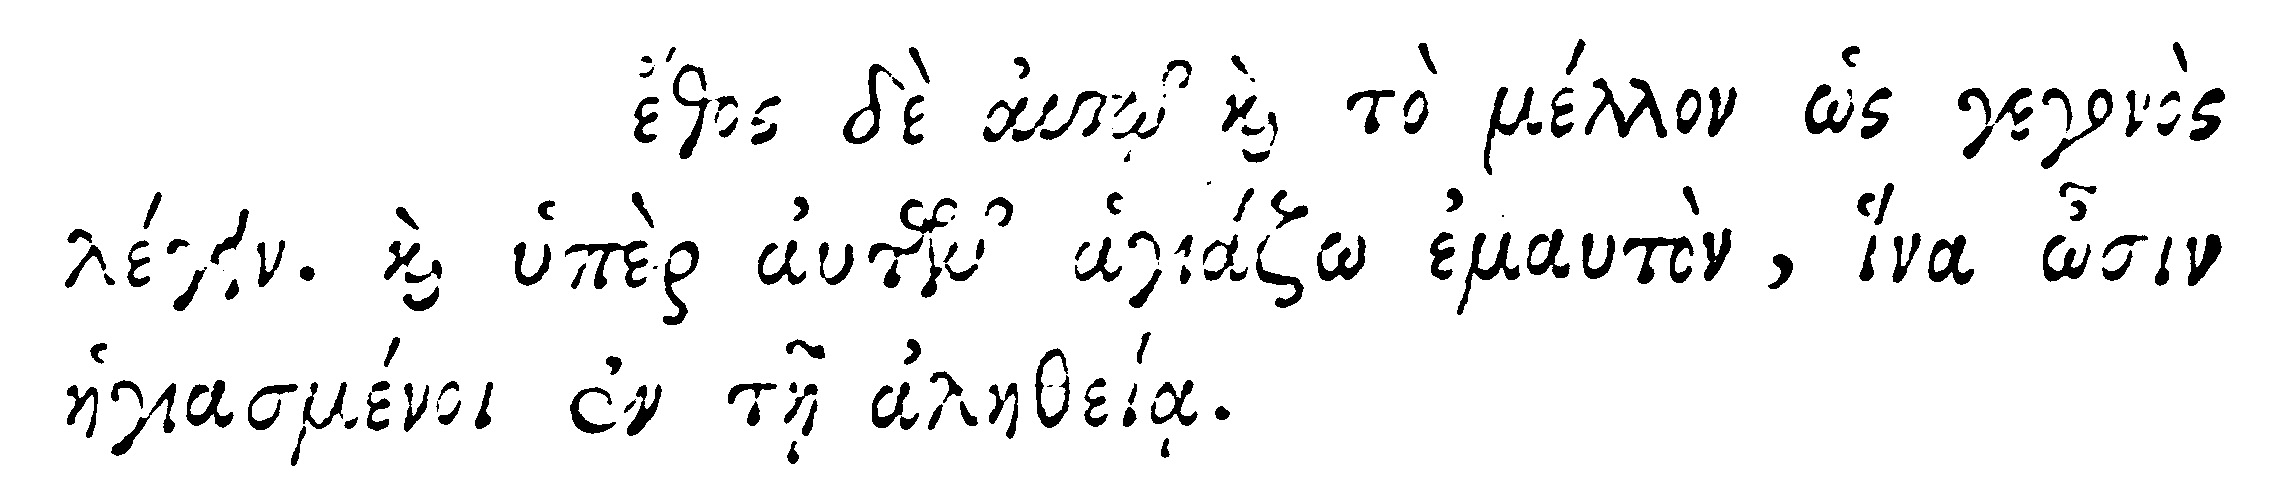 ἔθος δὲ αὐτῷ καὶ τὸ μέλλον ὡς γεγονὸς
λέγειν. καὶ ὑπὲρ αὐτῶν ἁγιάζω ἐμαυτὸν, ἵνα ὦσιν
ἡγιασμένοι ἐν τῇ ἀληθείᾳ.